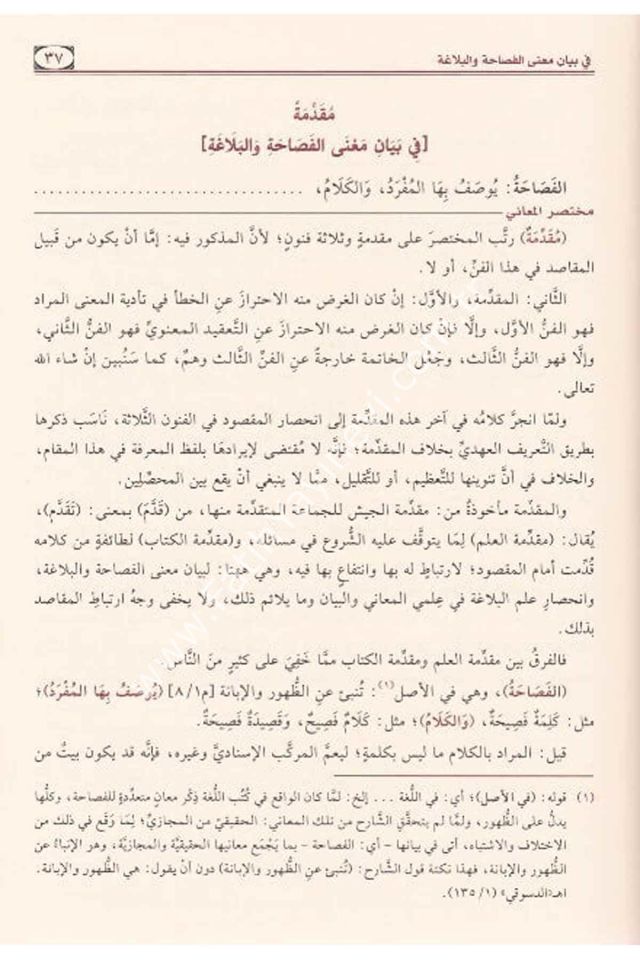 في بيان معنى الفصاحة والبلاغة
٣٧
مُقَدِّمَةٌ
[فِي بَيَانِ مَعْنَى الفَصَاحَةِ وَالبَلَاغَةِ]
الفَصَاحَةُ: يُوصَفُ بِهَا المُفْرَدُ، وَالكَلَامُ، ..................................
مختصر المعاني
(مُقَدِّمَةٌ) رتَّب المختصرَ على مقدمةٍ وثلاثة فنون؛ لأنَّ المذكور فيه: إمَّا أنْ يكون من قَبيل
المقاصد في هذا الفنِّ، أو لا.
الثاني: المقدِّمة، والأوَّل: إنْ كان الغرض منه الاحترازَ عنِ الخطأ في تأدية المعنى المراد
فهو الفنُّ الأوَّل، وإلَّا فإنْ كان الغرض منه الاحترازَ عن التَّعقيد المعنويِّ فهو الفنُّ الثَّاني،
وإلَّا فهو الفنُّ الثالث، وجَعْلُ الخاتمة خارجةً عن الفنِّ الثالث وهمٌ، كما سَنُبين إنْ شاء الله
تعالى.
ولمَّا انجرَّ كلامُه في آخر هذه المقدِّمة إلى انحصار المقصود في الفنون الثَّلاثة، نَاسَب ذكرها
بطريق التَّعريف العهديِّ بخلاف المقدِّمة؛ فإنَّه لا مُقتضى لإيرادها بلفظ المعرفة في هذا المقام،
والخلاف في أنَّ تنوينها للتَّعظيم، أو للتَّقليل، ممَّا لا ينبغي أنْ يقع بين المحصِّلين.
والمقدِّمة مأخوذةٌ من: مقدِّمة الجيش للجماعة المتقدِّمة منها، من (قَدَّمَ) بمعنى: (تَقَدَّمَ)،
يُقال: (مقدِّمة العلم) لِمَا يتوقَّف عليه الشُّروع في مسائله، و(مقدِّمة الكتاب) لطائفةٍ من كلامه
قُدِّمت أمام المقصود؛ لارتباطٍ له بها وانتفاعٍ بها فيه، وهي ههنا: لبيان معنى الفصاحة والبلاغة،
وانحصارِ علم البلاغة في عِلمي المعاني والبيان وما يلائم ذلك، ولا يخفى وجهُ ارتباط المقاصد
بذلك.
فالفرقُ بين مقدِّمة العلم ومقدِّمة الكتاب ممَّا خَفِيَ على كثيرٍ منَ النَّاس.
(الفَصَاحَةُ)، وهي في الأصل(١): تُنبئ عن الظُّهور والإبانة [م١/٨] (يُوصَفُ بِهَا المُفْرَدُ)؛
مثل: كَلِمَةٌ فَصِيحَةٌ، (وَالكَلَامُ)؛ مثل: كَلَامٌ فَصِيحٌ، وَقَصِيدَةٌ فَصِيحَةٌ.
قيل: المراد بالكلام ما ليس بكلمةٍ؛ ليعمَّ المركَّب الإسناديَّ وغيره، فإنَّه قد يكون بيت من
(١) قوله: (في الأصل)؛ أي: في اللُّغة ... إلخ: لمَّا كان الواقع في كُتُب اللُّغة ذِكر معانٍ متعدِّدةٍ للفصاحة، وكلُّها
يدلُّ على الظُّهور، ولمَّا لم يتحقَّق الشَّارح من تلك المعاني: الحقيقيَّ من المجازيِّ؛ لِمَا وَقَع في ذلك من
الاختلاف والاشتباه، أتى في بيانها - أي: الفصاحة - بما يَجْمَع معانيها الحقيقيَّة والمجازيَّة، وهو الإنباءُ عن
الظُّهور والإبانة، فهذا نكتة قول الشَّارح: (تُنبئ عن الظُّهور والإبانة) دون أنْ يقول: هي الظُّهور والإبانة.
اهـ«الدسوقي» (١/١٣٥).